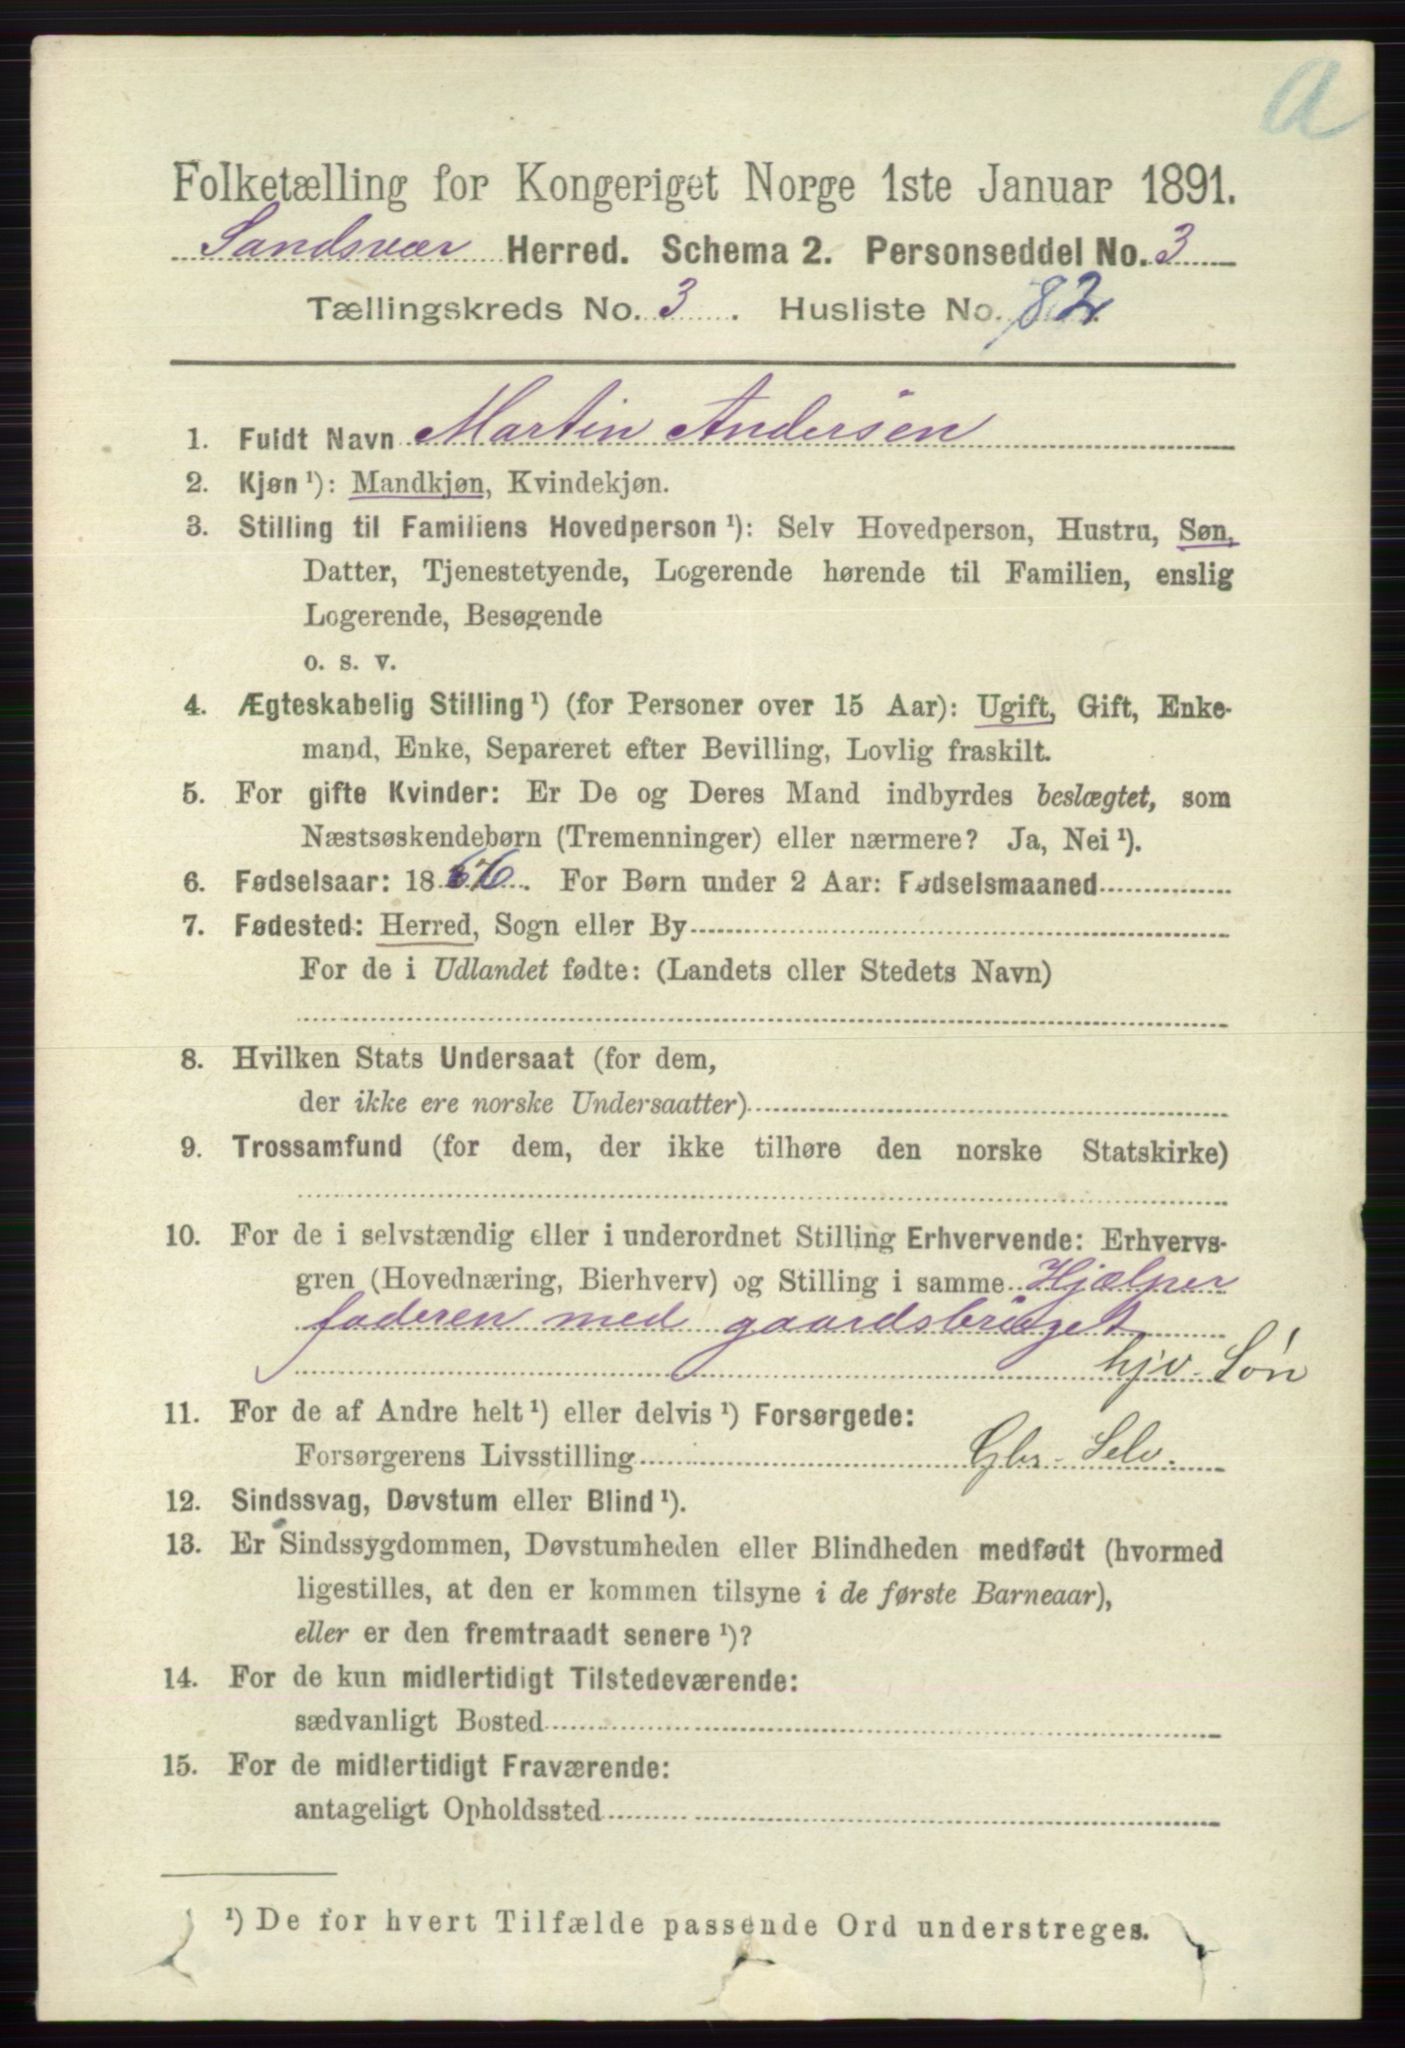 a
Folketælling for Kongeriget Norge 1ste Januar 1891.
Sandsvær Herred. Schema 2. Personseddel No. 3
Tællingskreds No. 3. Husliste No. 82
1. Fuldt Navn Martin Andersen
2. Kjøn ¹): Mandkjøn, Kvindekjøn.
3. Stilling til Familiens Hovedperson ¹): Selv Hovedperson, Hustru, Søn,
Datter, Tjenestetyende, Logerende hørende til Familien, enslig
Logerende, Besøgende
o. s. v.
4. Ægteskabelig Stilling ¹) (for Personer over 15 Aar): Ugift, Gift, Enke-
mand, Enke, Separeret efter Bevilling, Lovlig fraskilt.
5. For gifte Kvinder: Er De og Deres Mand indbyrdes beslægtet, som
Næstsøskendebørn (Tremenninger) eller nærmere? Ja, Nei ¹).
6. Fødselsaar: 18. For Børn under 2 Aar: Fødselsmaaned
7. Fødested: Herred, Sogn eller By
For de i Udlandet fødte: (Landets eller Stedets Navn)
8. Hvilken Stats Undersaat (for dem,
der ikke ere norske Undersaatter)
9. Trossamfund (for dem, der ikke tilhøre den norske Statskirke)
10. For de i selvstændig eller i underordnet Stilling Erhvervende: Erhvervs-
gren (Hovednæring, Bierhverv) og Stilling i samme Hjælper
faderen med gaardsbruget
hjv. Søn
11. For de af Andre helt ¹) eller delvis ¹) Forsørgede:
Forsørgerens Livsstilling Gbr. Selv.
12. Sindssvag, Døvstum eller Blind ¹).
13. Er Sindssygdommen, Døvstumheden eller Blindheden medfødt (hvormed
ligestilles, at den er kommen tilsyne i de første Barneaar),
eller er den fremtraadt senere ¹)?
14. For de kun midlertidigt Tilstedeværende:
sædvanligt Bosted
15. For de midlertidigt Fraværende:
antageligt Opholdssted
¹) De for hvert Tilfælde passende Ord understreges.